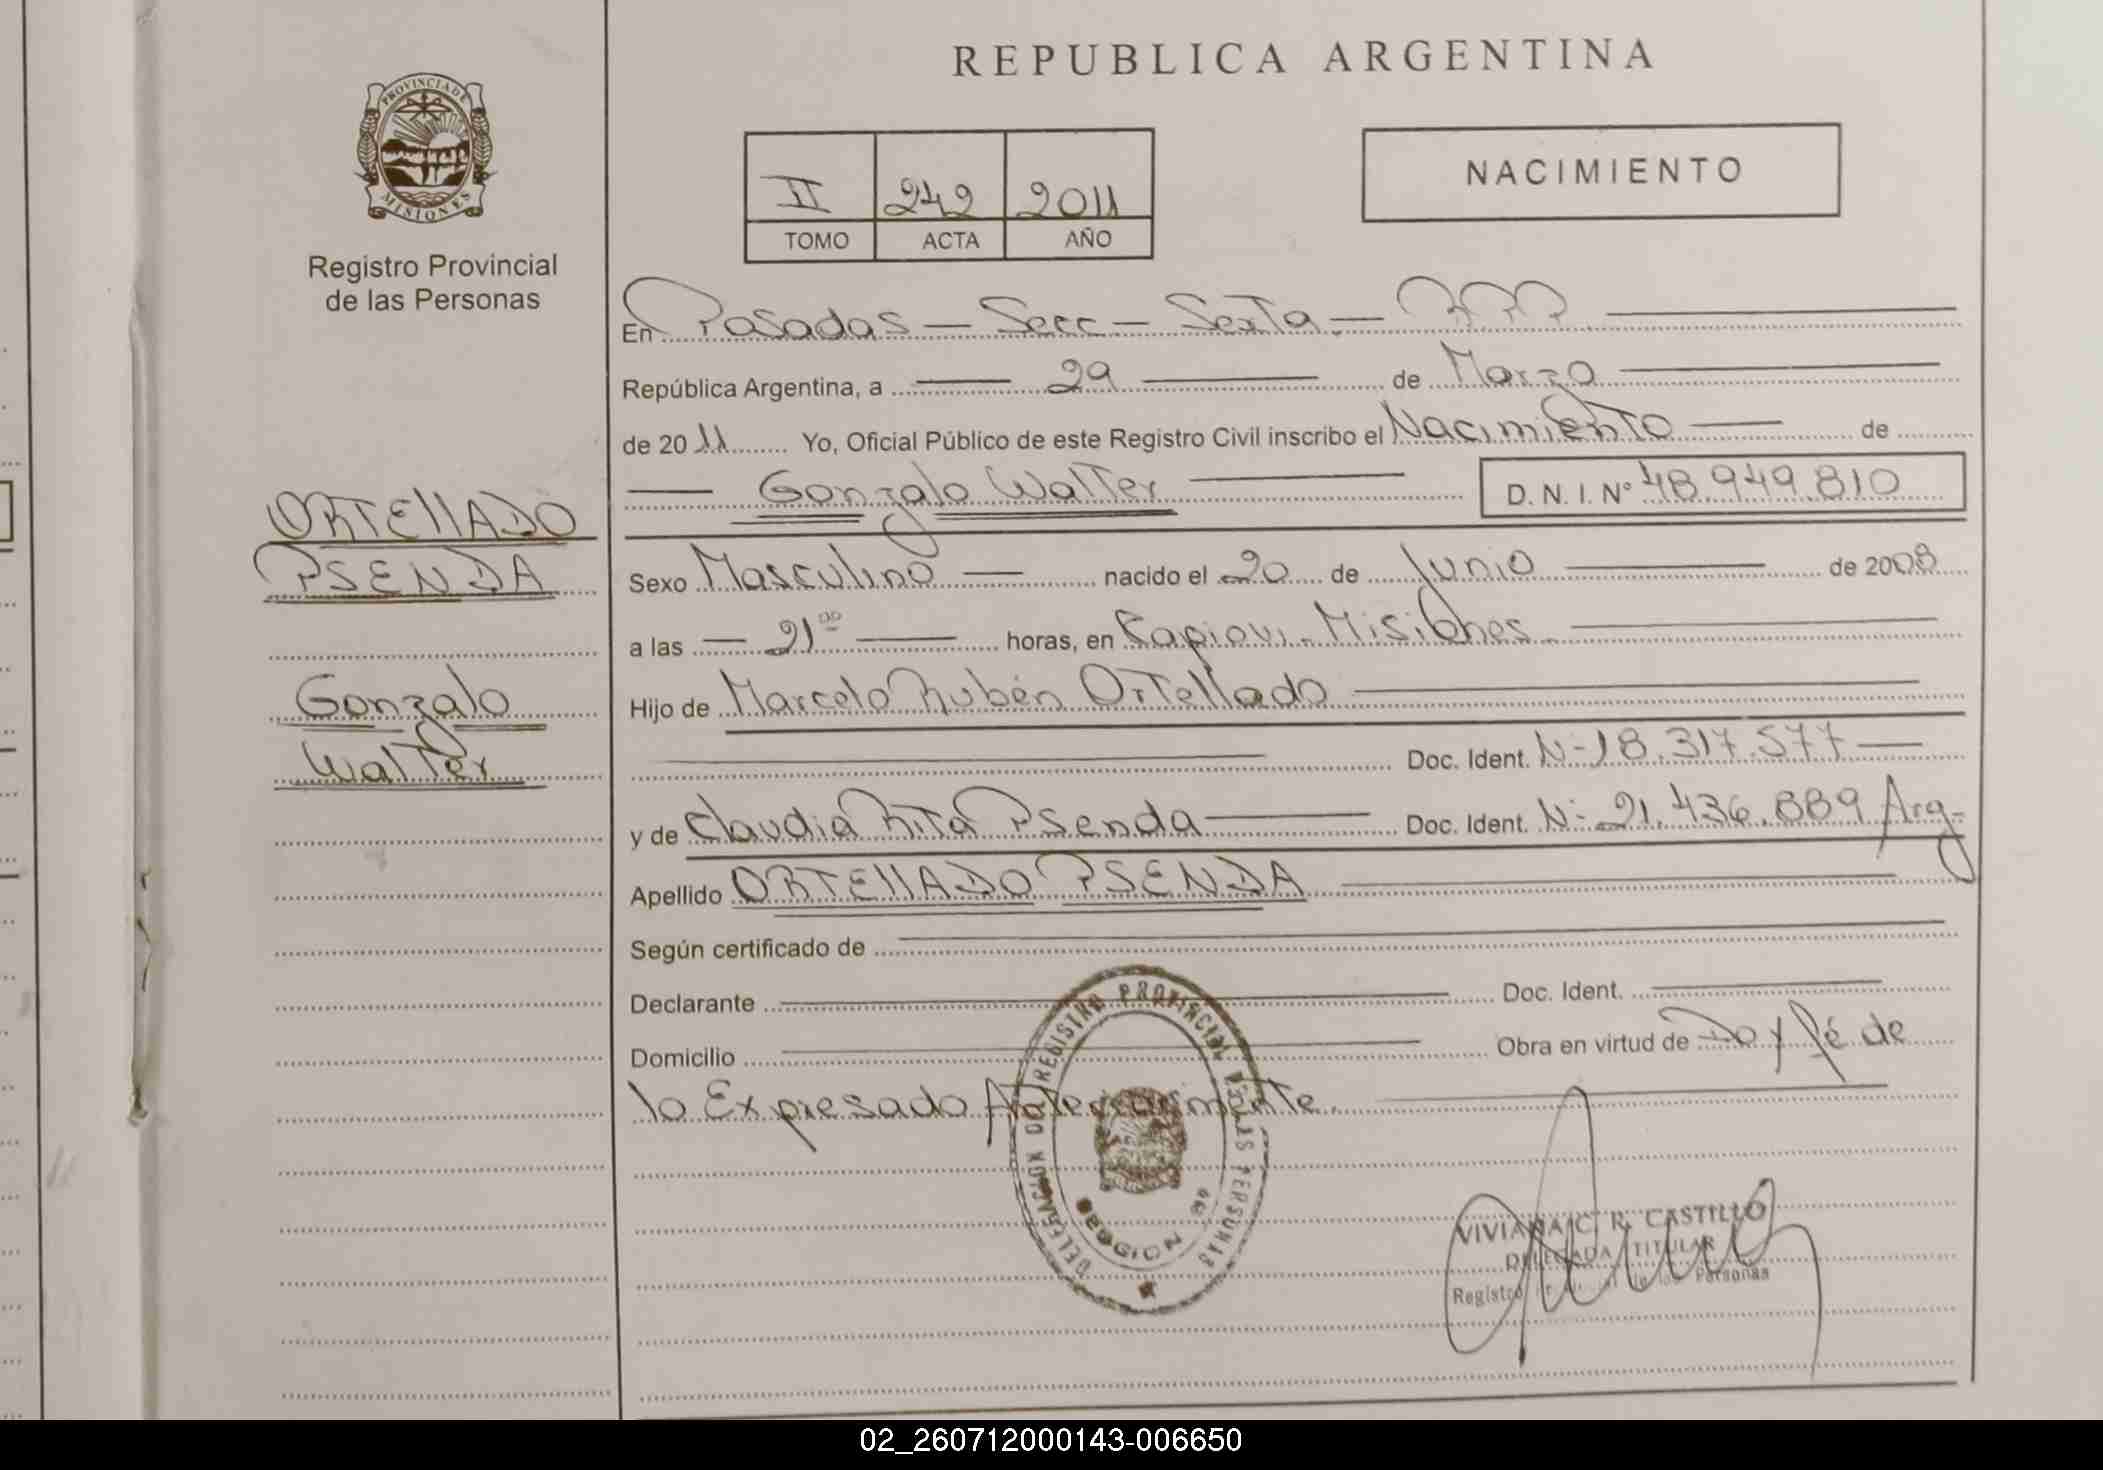 REPUBLICA ARGENTINA
PROVINCIA DE
MISIONES
Registro Provincial
de las Personas
II 242 2011
TOMO ACTA AÑO
NACIMIENTO
En Posadas - Secc - Sexta. - RPP
República Argentina, a 29 de Marzo
de 2011 Yo, Oficial Público de este Registro Civil inscribo el Nacimiento de
Gonzalo Walter D. N. I. Nº 48.949.810
ORTEllADO
PSENDA
Gonzalo
Walter
Sexo Masculino nacido el 20 de Junio de 2008
a las 21 ºº horas, en Capiovi. Misiones
Hijo de Marcelo Rubén Ortellado
Doc. Ident. N-18.317.577
y de Claudia Rita Psenda Doc. Ident. N- 21.436.889 Arg-
Apellido ORTEllADO PSENDA
Según certificado de
Declarante Doc. Ident.
Domicilio Obra en virtud de Doy Fé de
lo Expresado Anteriormente.
DELEGACION DEL REGISTRO PROVINCIAL DE LAS PERSONAS
VIVIANA C. R. CASTILLO
DELEGADA TITULAR
Registro Provincial de las Personas
02_260712000143-006650